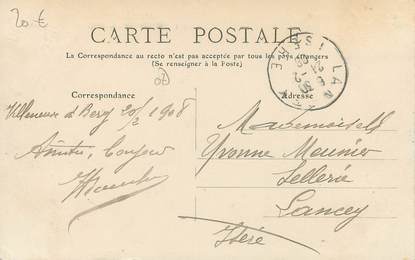 20-€
CARTE POSTALE
La Correspondance au recto n'est pas acceptée par tous les pays étrangers
(Se renseigner à la Poste)
Correspondance
Adresse
Villeneuve d Berg 20/2 1908
Amitiés, Bonjour
Mademoiselle
Yvonne Meunier
Sellerie
Lancey
Isère
LAN
ISÈRE